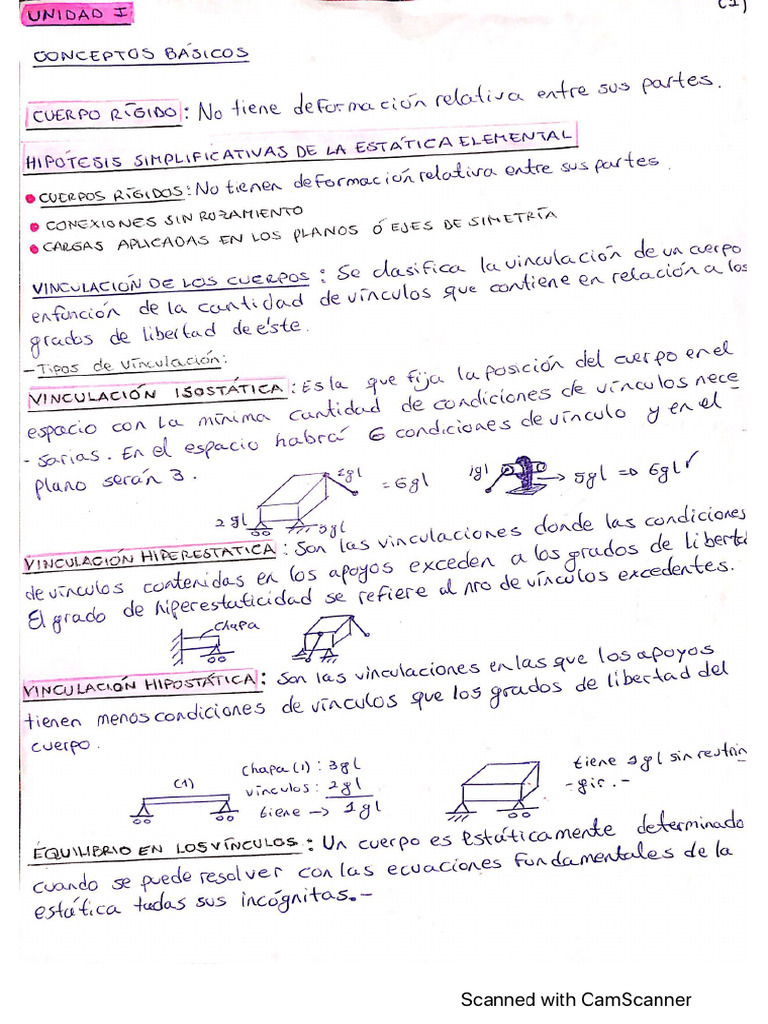 UNIDAD I
(1)
CONCEPTOS BÁSICOS
CUERPO RÍGIDO: No tiene deformación relativa entre sus partes.
HIPÓTESIS SIMPLIFICATIVAS DE LA ESTÁTICA ELEMENTAL
• CUERPOS RÍGIDOS: No tienen deformación relativa entre sus partes.
• CONEXIONES SIN ROZAMIENTO
• CARGAS APLICADAS EN LOS PLANOS Ó EJES DE SIMETRÍA
VINCULACIÓN DE LOS CUERPOS: Se clasifica la vinculación de un cuerpo
en función de la cantidad de vínculos que contiene en relación a los
grados de libertad de éste.
- Tipos de vinculación:
VINCULACIÓN ISOSTÁTICA: Es la que fija la posición del cuerpo en el
espacio con la mínima cantidad de condiciones de vínculos nece
- sarias. En el espacio habrá 6 condiciones de vínculo y en el
plano serán 3.
1gl
= 6gl
1gl
→ 5gl => 6gl ✓
2gl
3gl
VINCULACIÓN HIPERESTATICA: Son las vinculaciones donde las condiciones
de vínculos contenidas en los apoyos exceden a los grados de libertad
El grado de hiperestaticidad se refiere al nro de vínculos excedentes.
chapa
VINCULACIÓN HIPOSTÁTICA: Son las vinculaciones en las que los apoyos
tienen menos condiciones de vínculos que los grados de libertad del
cuerpo.
(1)
chapa (1): 3gl
vínculos: 2gl
tiene → 1gl
tiene 1gl sin restrin
- gir. -
EQUILIBRIO EN LOS VÍNCULOS: Un cuerpo es estáticamente determinado
cuando se puede resolver con las ecuaciones fundamentales de la
estática todas sus incógnitas. -
Scanned with CamScanner